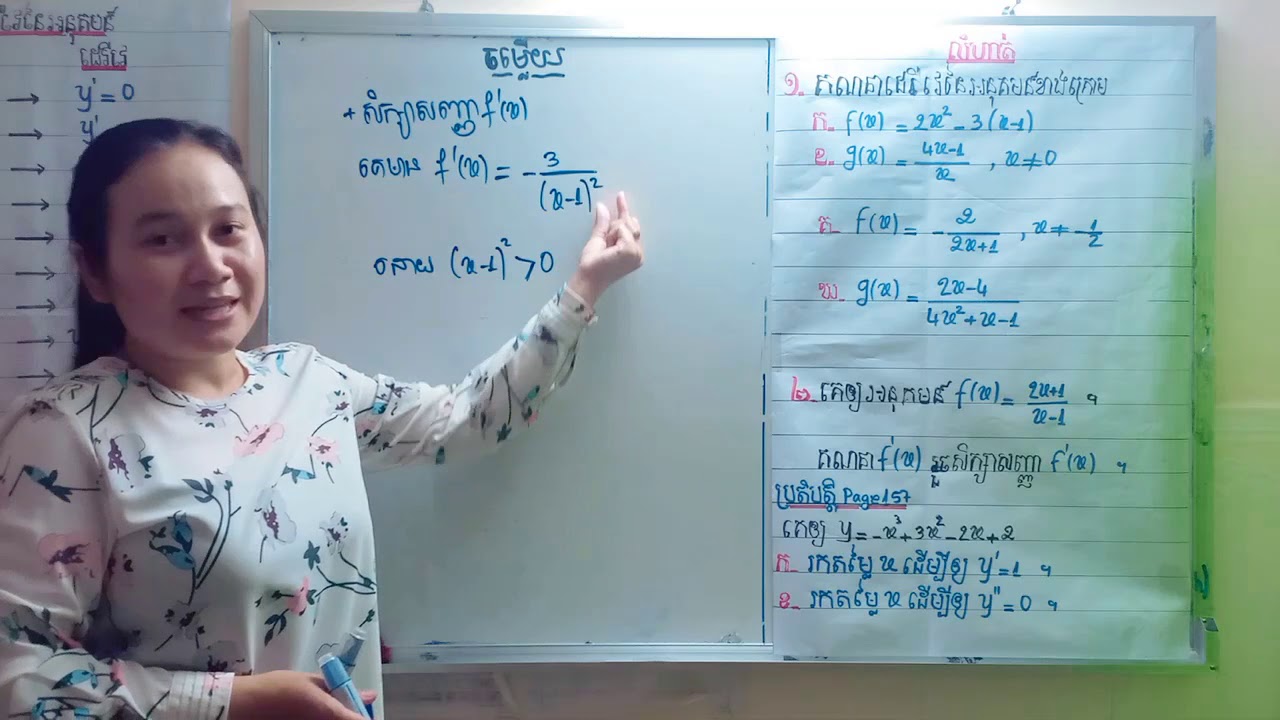 វៃនៃអនុគមន៍
ដេរីវេ
→ y' = 0
→ y'
ចម្លើយ
+ សិក្សាសញ្ញា f'(x)
គេមាន f'(x) = - 3/(x-1)²
ដោយ (x-1)² > 0
លំហាត់
១. គណនាដេរីវេនៃអនុគមន៍ខាងក្រោម
ក. f(x) = 2x² - 3(x-1)
ខ. g(x) = (4x-1)/x , x ≠ 0
គ. f(x) = - 2/(2x+1) , x ≠ -1/2
ឃ. g(x) = (2x-4)/(4x²+x-1)
២. គេឲ្យអនុគមន៍ f(x) = (2x+1)/(x-1) ។
គណនា f'(x) រួចសិក្សាសញ្ញា f'(x) ។
ប្រតិបត្តិ Page 157
គេឲ្យ y = -x³ + 3x² - 2x + 2
ក. រកតម្លៃ x ដើម្បីឲ្យ y' = 1 ។
ខ. រកតម្លៃ x ដើម្បីឲ្យ y" = 0 ។